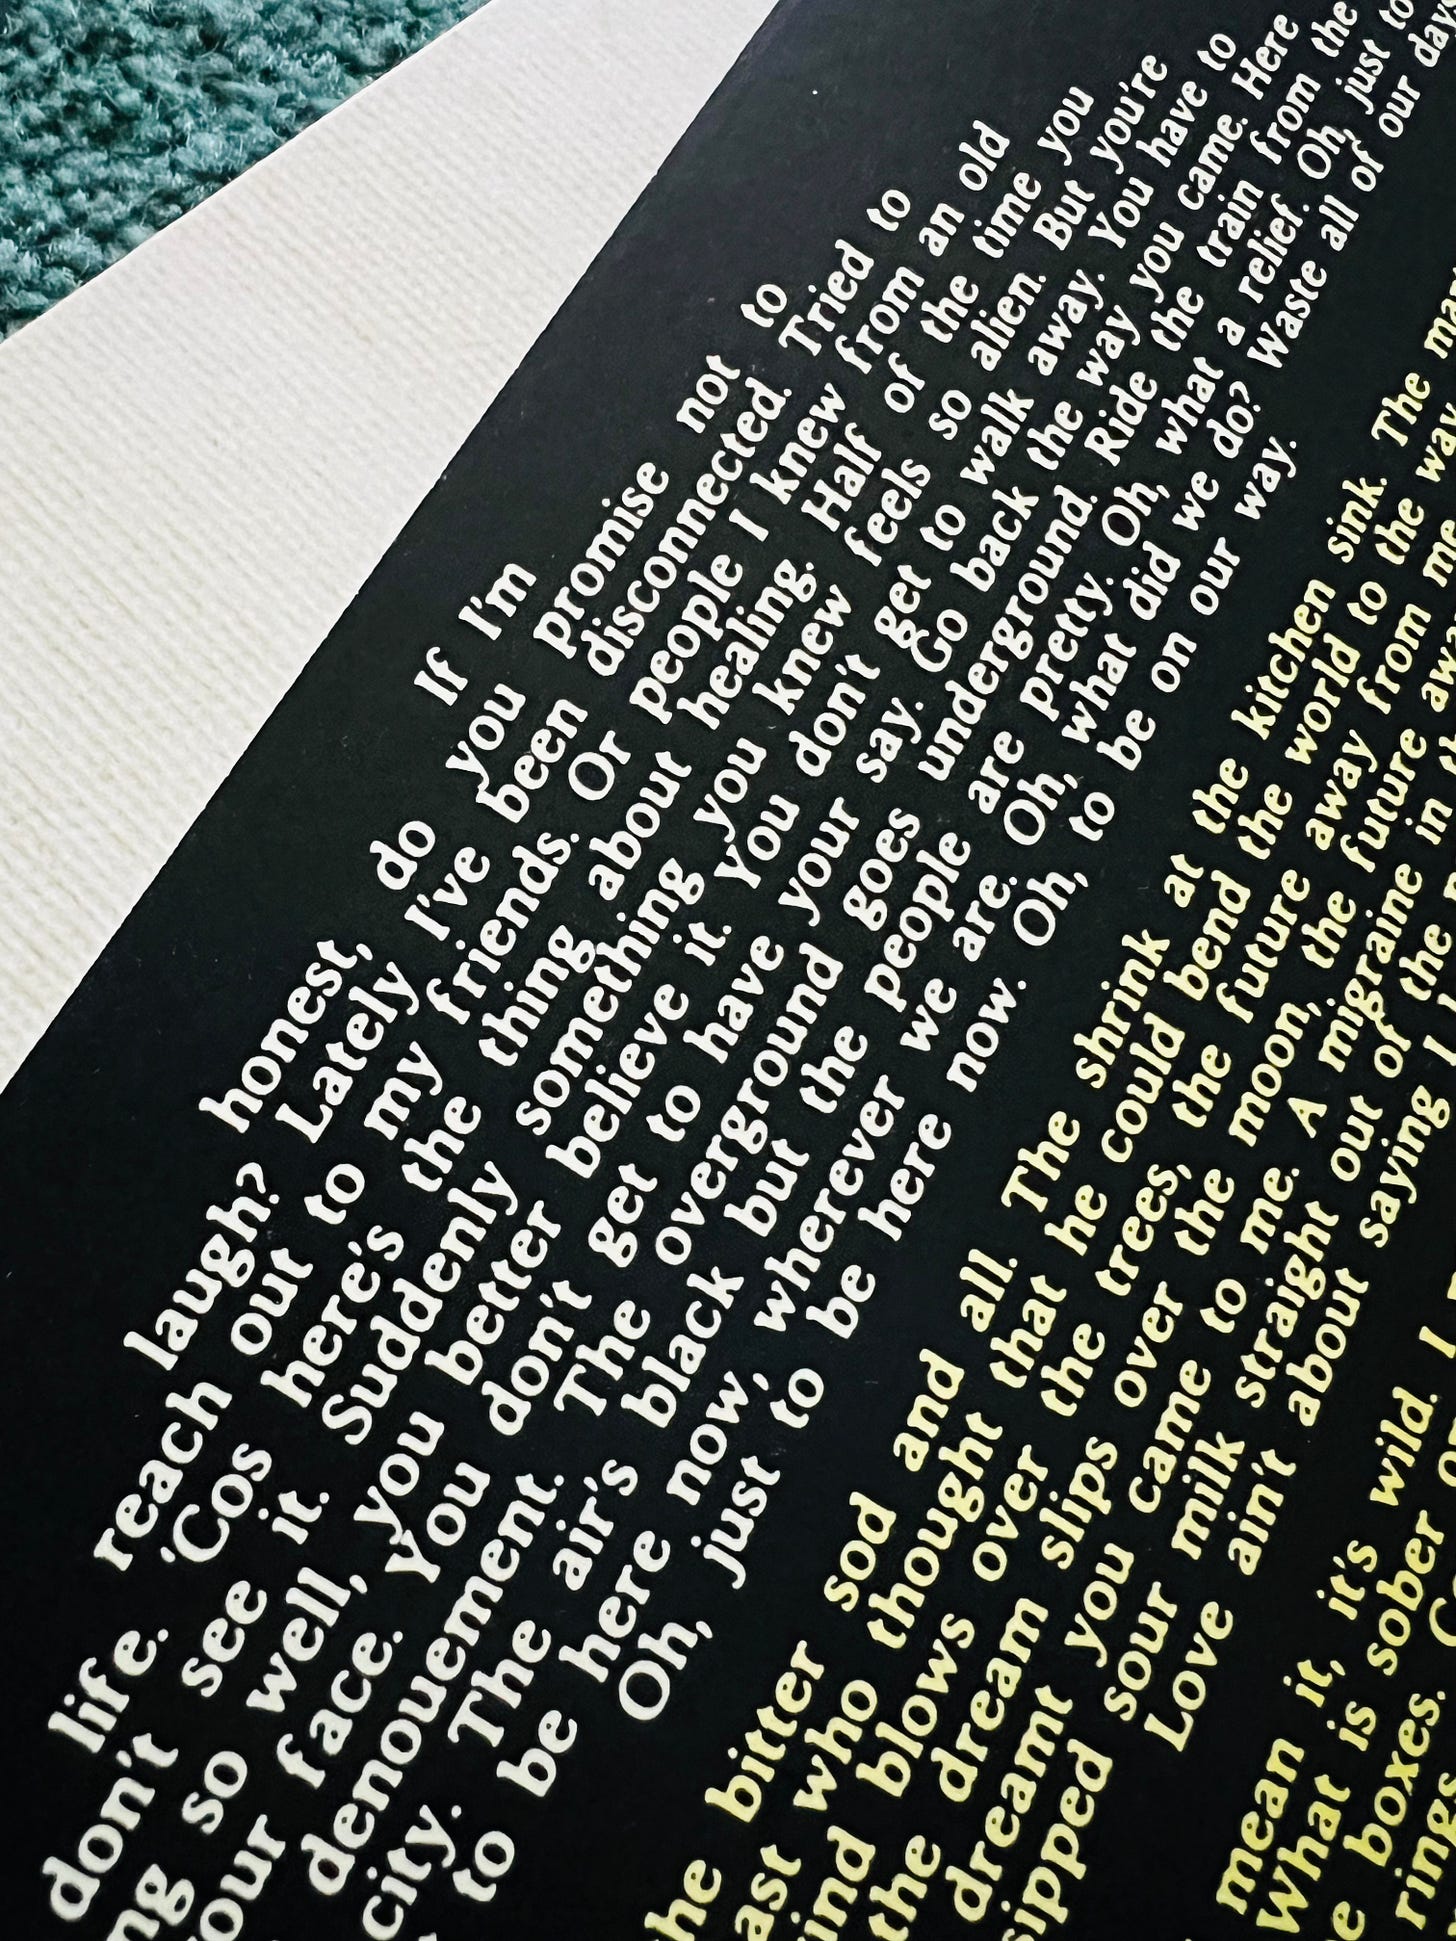 If I'm
honest, do you promise not to
laugh? Lately I've been disconnected. Tried to
reach out to my friends. Or people I knew from an old
life. 'Cos here's the thing about healing. Half of the time you
don't see it. Suddenly something you knew feels so alien. But you're
ng so well, you better believe it. You don't get to walk away. You have to
our face. You don't get to have your say. Go back the way you came. Here
denouement. The overground goes underground. Ride the train from the
city. The air's black but the people are pretty. Oh, what a relief. Oh, just to
to be here now, wherever we are. Oh, what did we do? Waste all of our days
Oh, just to be here now. Oh, to be on our way.
he bitter sod and all. The shrink at the kitchen sink. The man
ast who thought that he could bend the world to the way
ind blows over the trees, the future away from me
the dream slips over the moon, the future awa
dreamt you came to me. A migraine in th
sipped sour milk straight out of the
Love ain't about saying I
mean it, it's wild. I
What is sober
e boxes.
rings